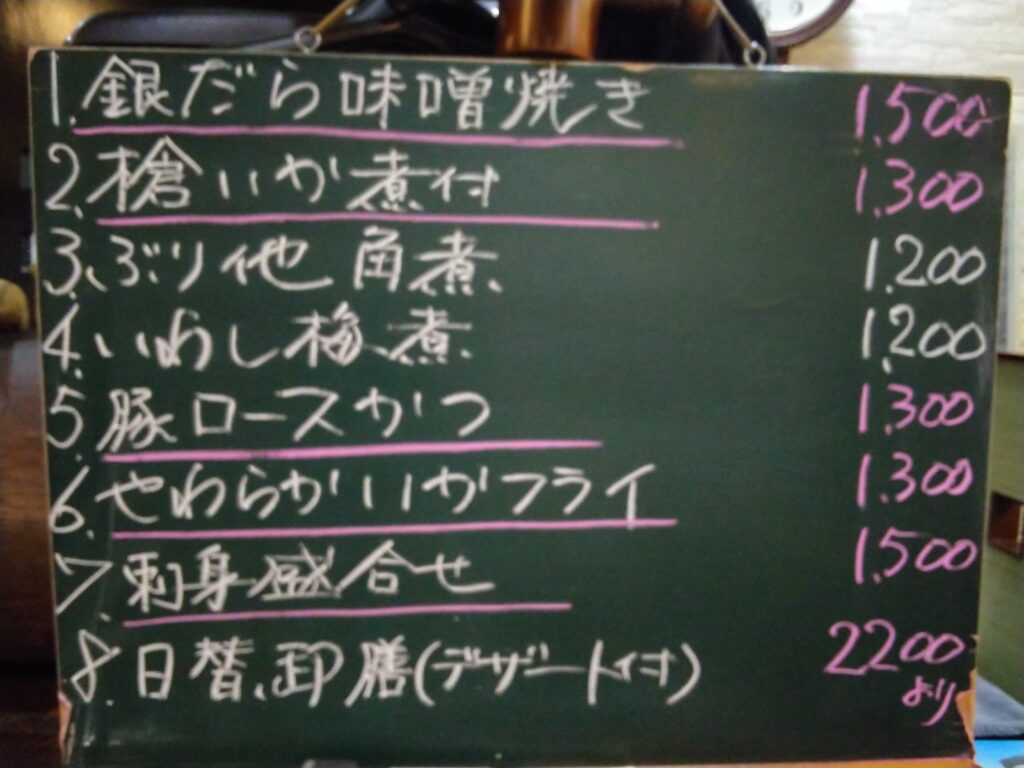 1.銀だら味噌焼き 1,500
2.槍いか煮付 1,300
3.ぶり他角煮 1,200
4.いわし梅煮 1,200
5.豚ロースかつ 1,300
6.やわらかいかフライ 1,300
7.刺身盛合せ 1,500
8.日替、御膳(デザート付) 2200
より